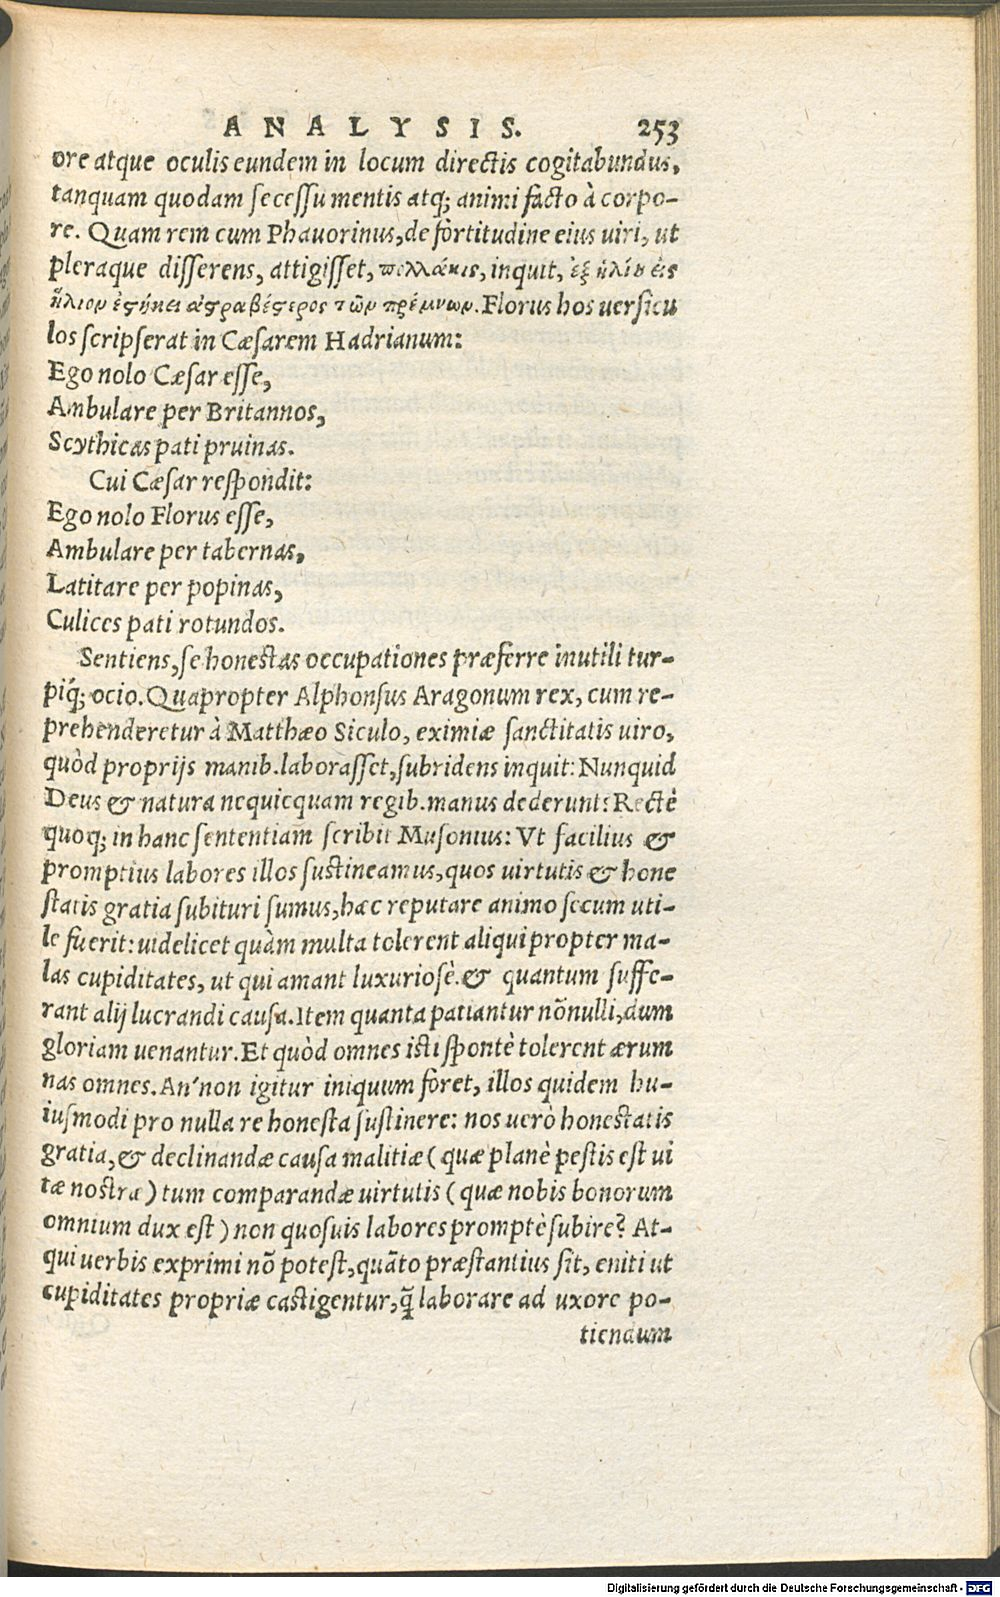 ANALYSIS. 253
ore atque oculis eundem in locum directis cogitabundus,
tanquam quodam secessu mentis atq; animi facto à corpo-
re. Quam rem cum Phauorinus, de fortitudine eius uiri, ut
pleraque disserens, attigisset, πολλάκις, inquit, ἐξ ἡλίου εἰς
ἥλιον ἑςήκει ἀςραβέςερος τῶν πρέμνων. Florus hos uersicu
los scripserat in Cæsarem Hadrianum:
Ego nolo Cæsar esse,
Ambulare per Britannos,
Scythicas pati pruinas.
Cui Cæsar respondit:
Ego nolo Florus esse,
Ambulare per tabernas,
Latitare per popinas,
Culices pati rotundos.
Sentiens, se honestas occupationes præferre inutili tur-
piq́; ocio. Quapropter Alphonsus Aragonum rex, cum re-
prehenderetur à Matthæo Siculo, eximiæ sanctitatis uiro,
quòd proprijs manib. laborasset, subridens inquit: Nunquid
Deus & natura nequicquam regib. manus dederunt: Rectè
quoq; in hanc sententiam scribit Musonius: Vt facilius &
promptius labores illos sustineamus, quos uirtutis & hone
statis gratia subituri sumus, hæc reputare animo secum uti-
le fuerit: uidelicet quàm multa tolerent aliqui propter ma-
las cupiditates, ut qui amant luxuriosè. & quantum suffe-
rant alij lucrandi causa. Item quanta patiantur nōnulli, dum
gloriam uenantur. Et quòd omnes isti spontè tolerent ærum
nas omnes. An'non igitur iniquum foret, illos quidem hu-
iusmodi pro nulla re honesta sustinere: nos uerò honestatis
gratia, & declinandæ causa malitiæ (quæ planè pestis est ui
tæ nostræ) tum comparandæ uirtutis (quæ nobis bonorum
omnium dux est) non quosuis labores promptè subire? At-
qui uerbis exprimi nō potest, quāto præstantius sit, eniti ut
cupiditates propriæ castigentur, q̄ laborare ad uxore po-
tiendum
Digitalisierung gefördert durch die Deutsche Forschungsgemeinschaft - DFG